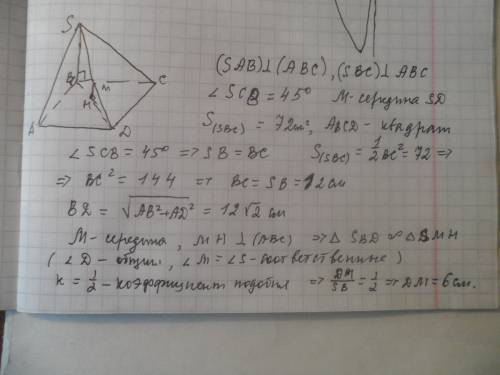 S
B
M
C
H
A
D
(SAB)⊥(ABC), (SBC)⊥ABC
∠SCB = 45° M-середина SD
S(SBC) = 72см², ABCD - квадрат
∠SCB = 45° ⇒ SB = BC S(SBC) = 1/2 BC² = 72 ⇒
⇒ BC² = 144 ⇒ BC = SB = 12 см
BD = √(AB²+AD²) = 12√2 см
M - середина, MH ⊥ (ABC) ⇒ △SBD ∞ △SMH
(∠D - общий, ∠M = ∠S - соответственные)
k = 1/2 - коэффициент подобия ⇒ DM/SB = 1/2 ⇒ DM = 6 см.